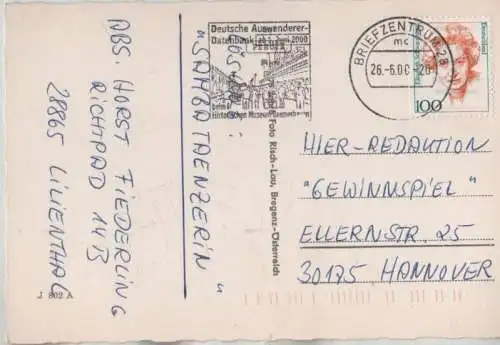 ABS. HORST FIEDERLING
RICHTPAD 14B
28865 LILIENTHAL
J 802 A
"SAMBATAENZERIN"
Deutsche Auswanderer-
Datenbank
2000
beim
Historischen Museum Bremerhaven
Foto Risch-Lau, Bregenz-Österreich
BRIEFZENTRUM 28
mc
26.-6.00-20
Deutschland
100
HIER-REDAUTION
"GEWINNSPIEL"
ELLERNSTR. 25
30175 HANNOVER